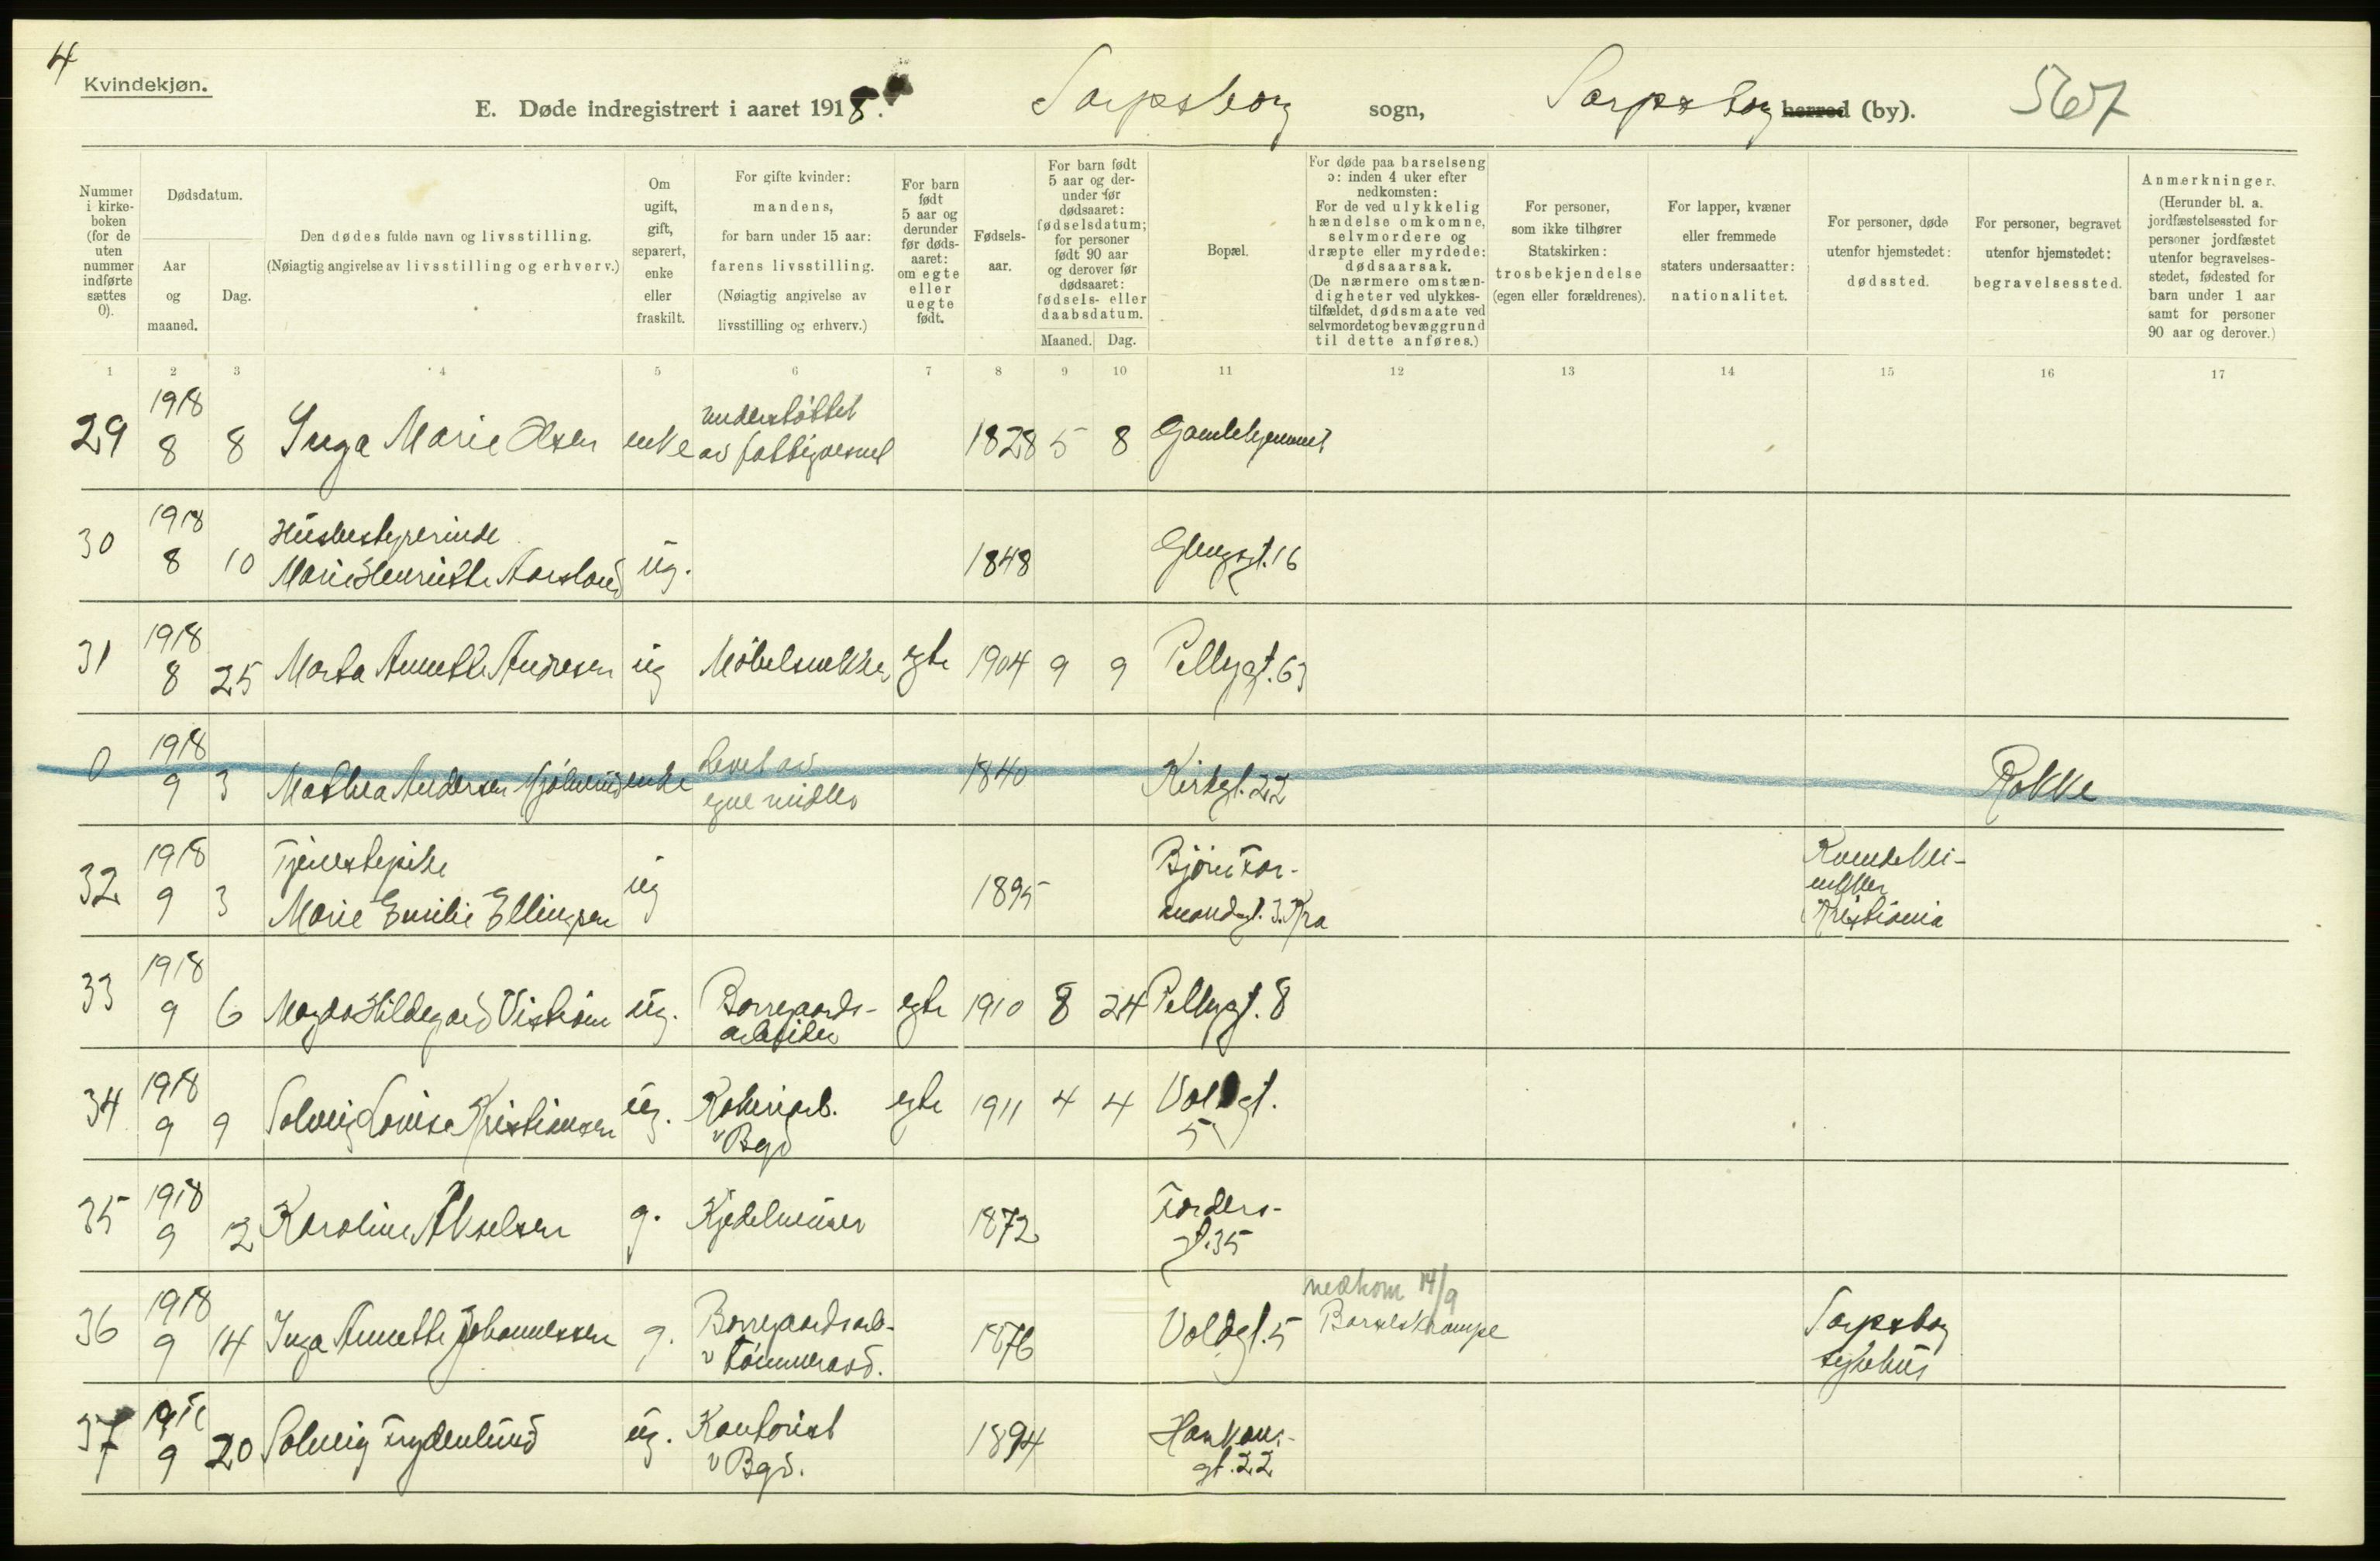 4
Kvindekjøn.
E. Døde indregistrert i aaret 1918. Sarpsborg sogn, Sarpsborg herred (by). 567
Nummer i kirkeboken (for de uten nummer indførte sættes 0).
Dødsdatum.
Aar og maaned.
Dag.
Den dødes fulde navn og livsstilling.
(Nøiagtig angivelse av livsstilling og erhverv.)
Om ugift, gift, separert, enke eller fraskilt.
For gifte kvinder: mandens, for barn under 15 aar: farens livsstilling. (Nøiagtig angivelse av livsstilling og erhverv.)
For barn født 5 aar og derunder før dødsaaret: om egte eller uegte født.
Fødselsaar.
For barn født 5 aar og derunder før dødsaaret: fødselsdatum; for personer født 90 aar og derover før dødsaaret: fødsels- eller daabsdatum.
Maaned. Dag.
Bopæl.
For døde paa barselseng ɔ: inden 4 uker efter nedkomsten: For de ved ulykkelig hændelse omkomne, selvmordere og dræpte eller myrdede: dødsaarsak. (De nærmere omstændigheter ved ulykkestilfældet, dødsmaate ved selvmordet og bevæggrund til dette anføres.)
For personer, som ikke tilhører Statskirken: trosbekjendelse (egen eller forældrenes).
For lapper, kvæner eller fremmede staters undersaatter: nationalitet.
For personer, døde utenfor hjemstedet: dødssted.
For personer, begravet utenfor hjemstedet: begravelsessted.
Anmerkninger. (Herunder bl. a. jordfæstelsessted for personer jordfæstet utenfor begravelsesstedet, fødested for barn under 1 aar samt for personer 90 aar og derover.)
1 2 3 4 5 6 7 8 9 10 11 12 13 14 15 16 17
29 1918 8 8 Inga Marie Olsen enke understøttet av fattigvesnet 1828 5 8 Gamlehjemmet
30 1918 8 10 Husbestyrerinde Marie Henriette Aarsland ug. 1848 Glengsgt. 16
31 1918 8 25 Marta Annette Andresen ug Møbelsnekker egte 1904 9 9 Pellygt. 63
0 1918 9 3 Mathea Andersen enke Levet av egne midler 1840 Kirkegt. 22 Rokke
32 1918 9 3 Tjenestepike Marie Emilie Ellingsen ug 1895 Bjørn Farmandsgt. 3. Kra Kvindeklinikken Kristiania
33 1918 9 6 Magda Hildegard Viström ug. Borregaardsarbeider egte 1910 8 24 Pellygt. 8
34 1918 9 9 Solveig Lovise Kristiansen ug. Kokeriarb. v Bgd egte 1911 4 4 Voldgt. 5
35 1918 9 12 Karoline Akselsen g. Kjedelrenser 1872 gt. 35
36 1918 9 14 Inga Annette Johannessen g. Borregaardsarb. v tømmeravd. 1876 Voldgt. 5 nedkom 14/9 Barselskrampe Sarpsborg sykehus
37 1918 9 20 Solveig Frydenlund ug. Kontorist v Bgd. 1894 Haakonsgt. 22